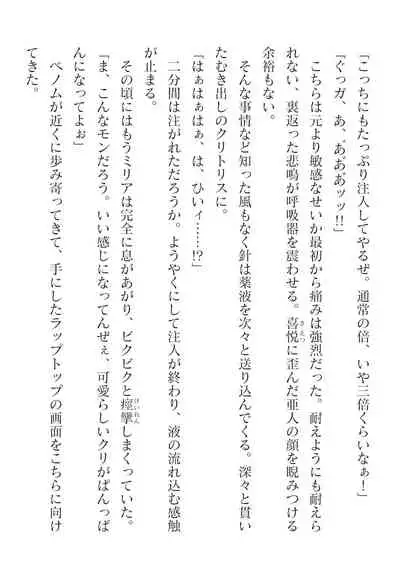 「こっちにもたっぷり注入してやるぜ。通常の倍、いや三倍くらいなぁ！」
「ぐっガ、あ、あ゛あ゛あ゛ッッ!!」
こちらは元より敏感なせいか最初から痛みは強烈だった。耐えようにも耐えら
れない、裏返った悲鳴が呼吸器を震わせる。喜悦に歪んだ亜人の顔を睨みつける
余裕もない。
そんな事情など知った風もなく針は薬液を次々と送り込んでくる。深々と貫い
たむき出しのクリトリスに。
「はぁはぁはぁ、は、ひいィ……!?」
二分間は注がれただろうか。ようやくにして注入が終わり、液の流れ込む感触
が止まる。
その頃にはもうミリアは完全に息があがり、ビクビクと痙攣しまくっていた。
「ま、こんなモンだろう。いい感じになってんぜぇ、可愛らしいクリがぱんっぱ
んになってよぉ」
ベノムが近くに歩み寄ってきて、手にしたラップトップの画面をこちらに向け
てきた。